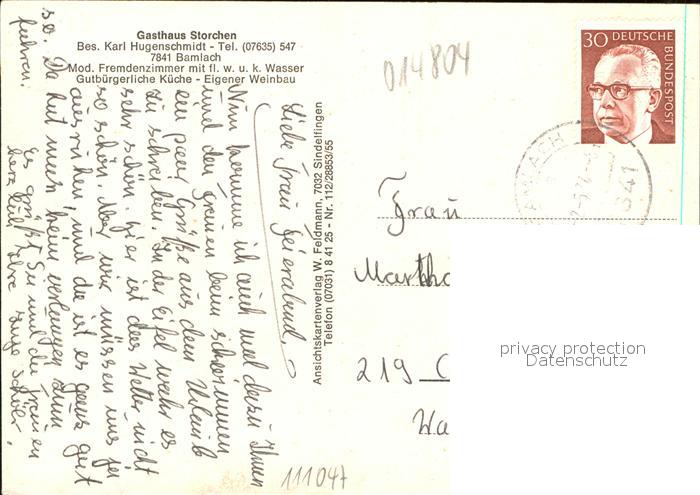 Gasthaus Storchen
Bes. Karl Hugenschmidt - Tel. (07635) 547
7841 Bamlach
Mod. Fremdenzimmer mit fl. w. u. k. Wasser
Gutbürgerliche Küche - Eigener Weinbau
014804
30 DEUTSCHE
BUNDESPOST
BAMLACH
7841
Liebe Frau Feierabend,
Nun komme ich auch mal dazu Ihnen
und den Frauen beim schwimmen
ein paar Grüße aus dem Urlaub
zu schreiben. In der Eifel wahr es
sehr schön. hier ist das Wetter nicht
so schön. Aber wir müssen uns ja
ausruhen, und da ist es ganz gut
so. Da hat man kein verlangen zum
fahren.
Es grüßt Sie und die Frauen
herzlich Ihre
Ansichtskartenverlag W. Feldmann, 7032 Sindelfingen
Telefon (07031) 8 41 25 - Nr. 112/28853/55
Frau
Martha
219
Wa
privacy protection
Datenschutz
111047